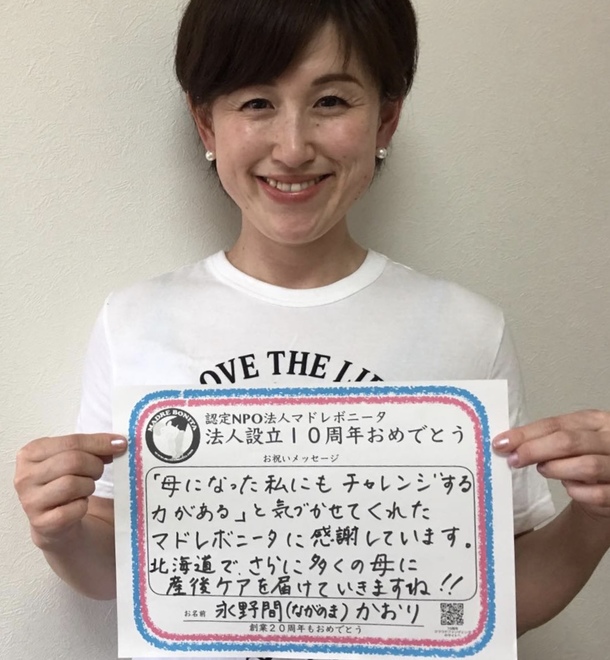 OVE THE LI
MADRE BONITA
認定NPO法人マドレボニータ
法人設立10周年おめでとう
お祝いメッセージ
「母になった私にも チャレンジする
力がある」と気づかせてくれた
マドレボニータに感謝しています。
北海道で、さらに多くの母に
産後ケアを届けていきますね!!
お名前 永野間(ながのま)かおり
創業20周年もおめでとう